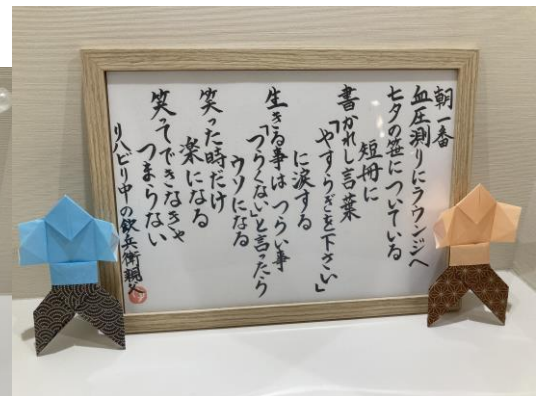 朝一番
血圧測りにラウンジへ
七夕の笹についている
短冊に
書かれし言葉
「やすらぎを下さい」
に涙する
生きる事はつらい事
「つらくない」と言ったら
ウソになる
笑った時だけ
楽になる
笑ってできなきゃ
つまらない
リハビリ中の飲兵衛親父